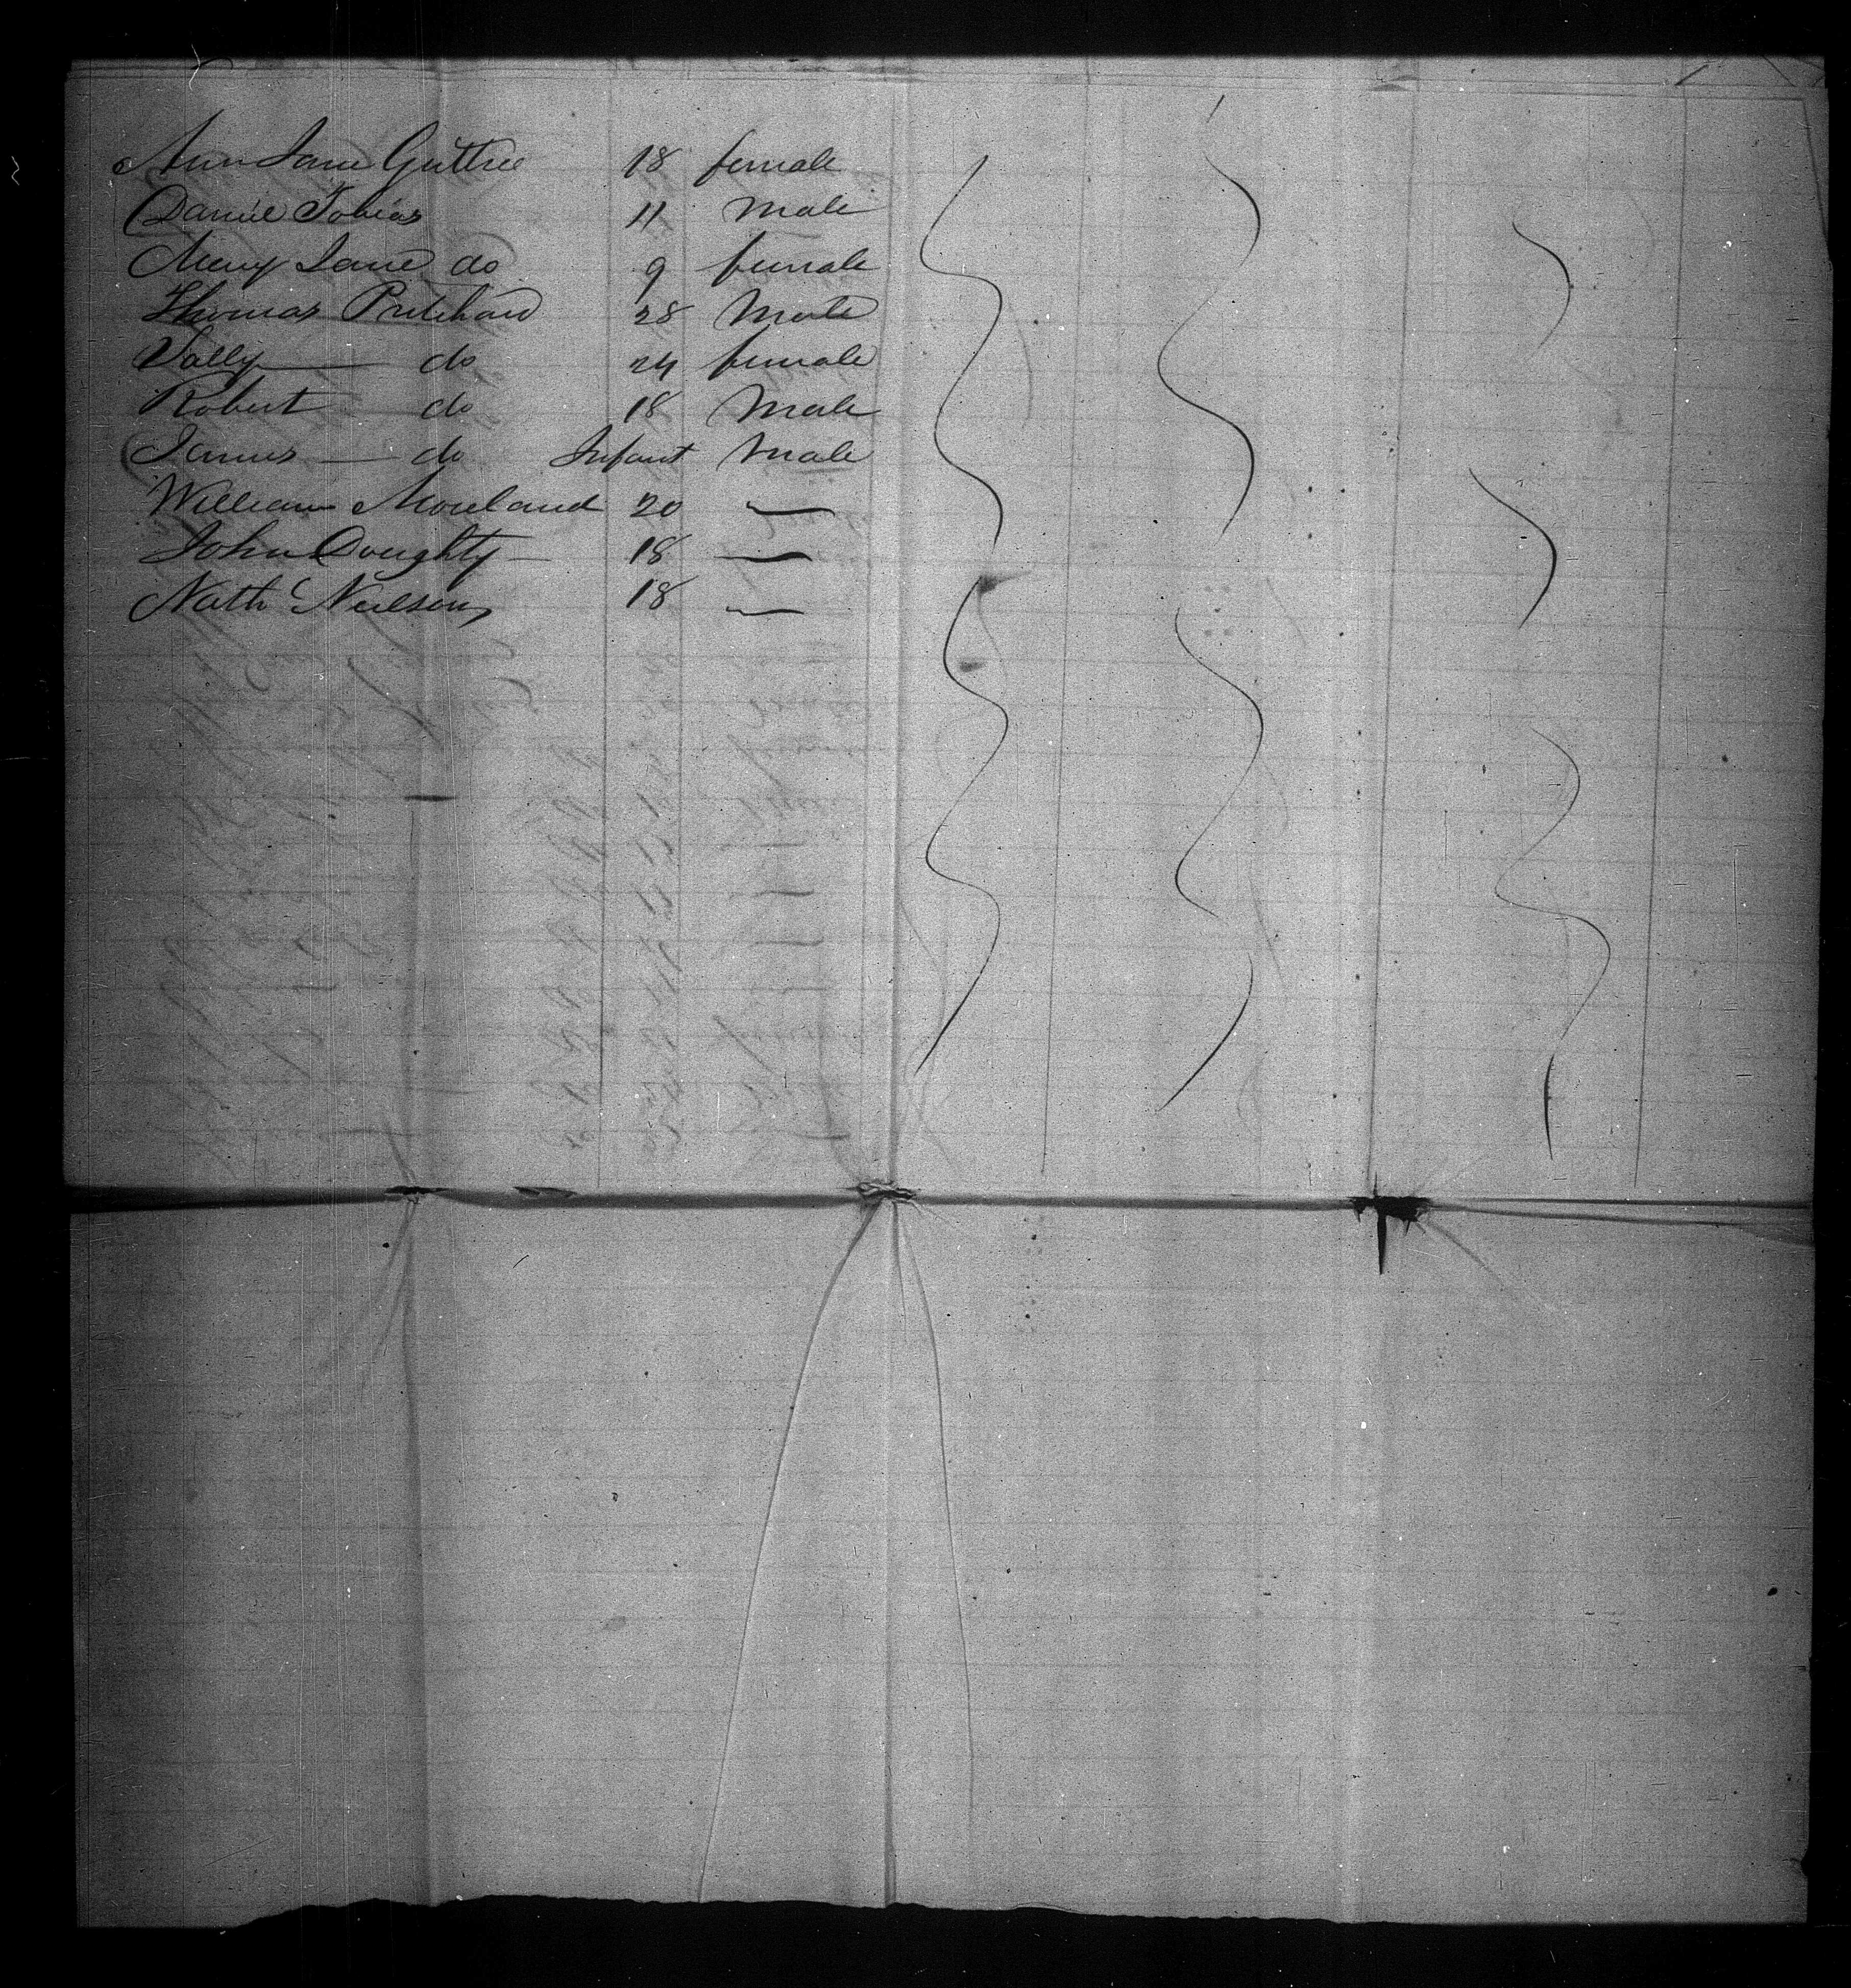 Ann Jane Guthree 18 female
Daniel Tobias 11 Male
Mary Jane do 9 female
Thomas Pritchard 28 Male
Sally — do 24 female
Robert do 18 Male
James — do Infant Male
William Moreland 20 —
John Doughty — 18 —
Nath Neilson 18 —